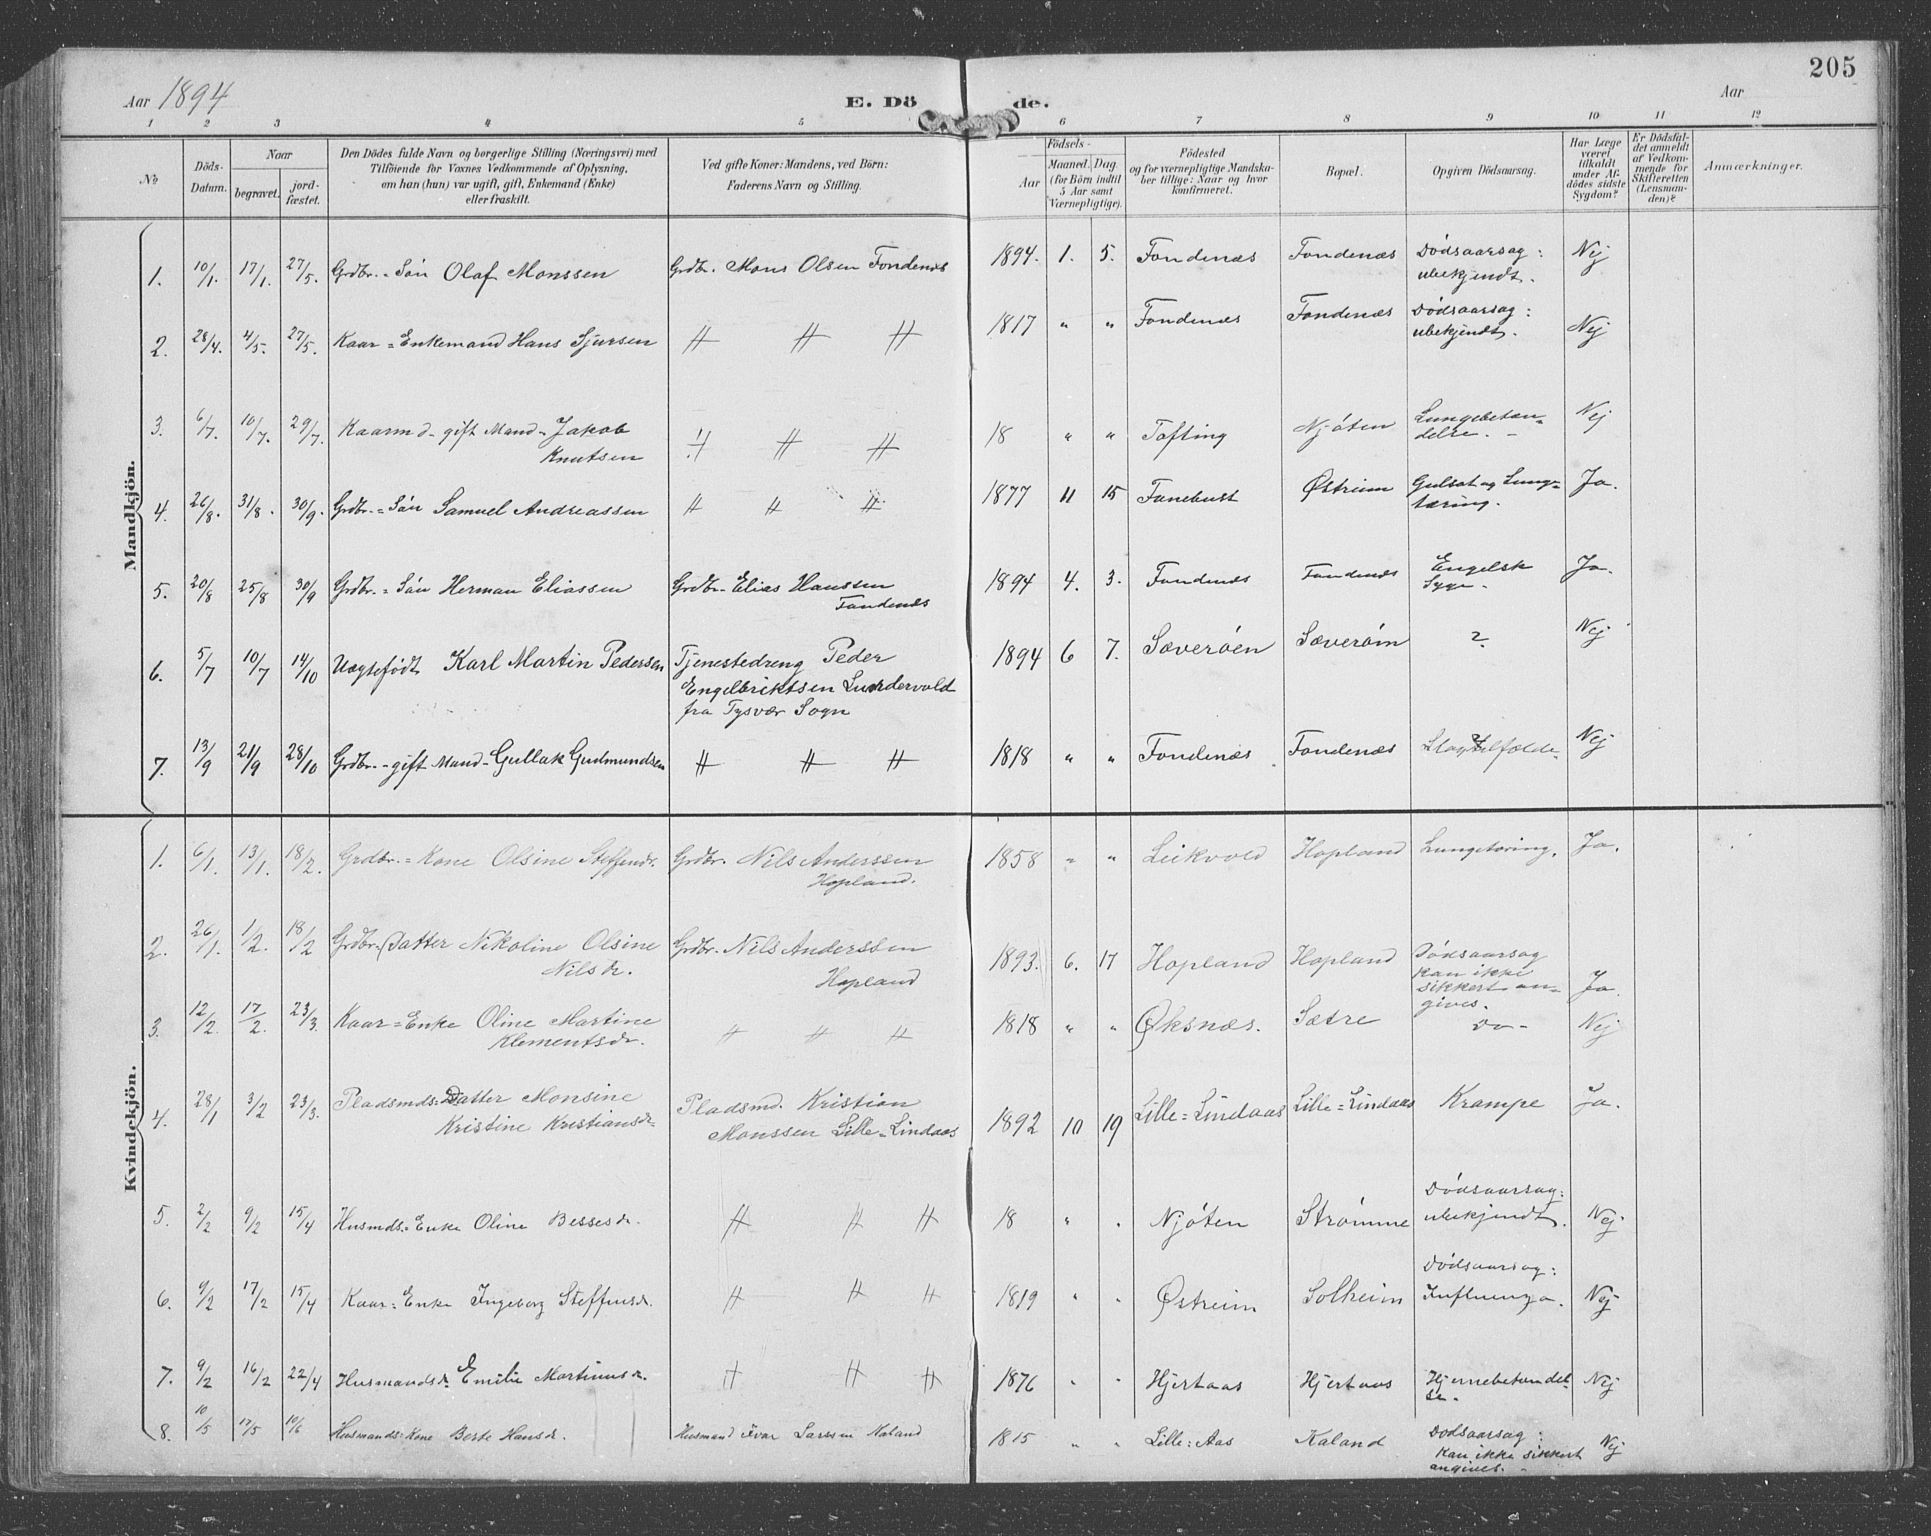 205
Aar 1894
E. Dö de.
Aar
1 2 3 4 5 6 7 8 9 10 11 12
No
Döds-
Datum.
Naar
begravet.
jord-
fæstet.
Den Dödes fulde Navn og borgerlige Stilling (Næringsvei) med
Tilföiende for Voxnes Vedkommende af Oplysning,
om han (hun) var ugift, gift, Enkemand (Enke)
eller fraskilt.
Ved gifte Koner: Mandens, ved Börn:
Faderens Navn og Stilling.
Födsels-
Aar
Maaned. Dag
(for Börn indtil
5 Aar samt
Værnepligtige).
Födested
og for værnepligtige Mandska-
ber tillige: Naar og hvor
konfirmeret.
Bopæl.
Opgiven Dödsaarsag.
Har Læge
været
tilkaldt
under Af-
dödes sidste
Sygdom?
Er Dödsfal-
det anmeldt
af Vedkom-
mende for
Skifteretten
(Lensman-
den)?
Anmærkninger.
Mandkjön.
1. 10/1. 17/1. 27/5. Grdbr. = Sön Olaf Monssen Grdbr. Mons Olsen Fondenæs 1894. 1. 5. Fondenæs Fondenæs Dödsaarsag:
ubekjendt. Nej
2. 28/4. 4/5. 27/5. Kaar = Enkemand Hans Sjursen 1817 " " Fondenæs Fondenæs Dödsaarsag:
ubekjendt. Nej
3. 6/7. 10/7. 29/7. Kaarmd - gift Mand - Jakob
Knutsen 18 " " Tofting Njöten Lungebetæn-
delse. - Nej
4. 26/8. 31/8. 30/9. Grdbr. = Sön Samuel Andreassen 1877 11 15 Fanebust Østreim Gulsot og Lung-
tæring. Ja.
5. 20/8 25/8 30/9 Grdbr. = Sön Herman Eliassen Grdbr. Elias Hanssen
Fondenæs 1894 4. 3. Fondenæs Fondenæs Engelsk
Syge. Ja.
6. 5/7 10/7 14/10 Uægtefödt Karl Martin Pedersen Tjenestedreng Peder
Engelbriktsen
fra Tysvær Sogn 1894 6 7. Sæveröen Sæveröin ? Nej
7. 13/9 21/9 28/10 Grdbr. - gift Mand - Gullak Gudmundsen 1818 " " Fondenæs Fondenæs Slagtilfælde. Nej
Kvindekjön.
1. 6/1. 13/1. 18/2. Grdbr. = Kone Olsine Steffensdr. Grdbr. Nils Anderssen
Hopland. 1858 " " Leikvold Hopland Lungetæring. Ja.
2. 26/1. 1/2. 18/2 Grdbr. Datter Nikoline Olsine
Nilsdr. Grdbr. Nils Anderssen
Hopland 1893. 6. 17 Hopland Hopland Dödsaarsag
kan ikke
sikkert an-
gives. Ja.
3. 12/2. 17/2. 23/3. Kaar = Enke Oline Martine
Klementsdr. 1818 " " Øksnæs. Sætre Do - Nej
4. 28/1 3/2 23/3. Pladsmds = Datter Monsine
Kristine Kristiansdr. Pladsmd. Kristian
Monssen Lille = Lindaas 1892 10 19 Lille = Lindaas Lille = Lindaas Krampe Ja.
5. 2/2 9/2 15/4 Husmds = Enke Oline Bessesdr. 18 " " Njöten Strömme Dödsaarsag:
ubekjendt. Nej
6. 9/2 17/2 15/4 Kaar = Enke Ingeborg Steffensdr. 1819 " " Østreim Solheim Dödsaarsag:
Influenza. Nej
7. 9/2 16/2 22/4 Husmandsdr. Emilie Martinusdr. 1876 " " Hjertaas Hjertaas Hjernebetændel-
se. Nej
8. 10/5 17/5 10/6 Husmands = Kone Berte Hansdr. Husmand Ivar Larssen 1815 " " Lille = Aas Kaland Dödsaarsag:
kan ikke sikkert
angives. - Nej